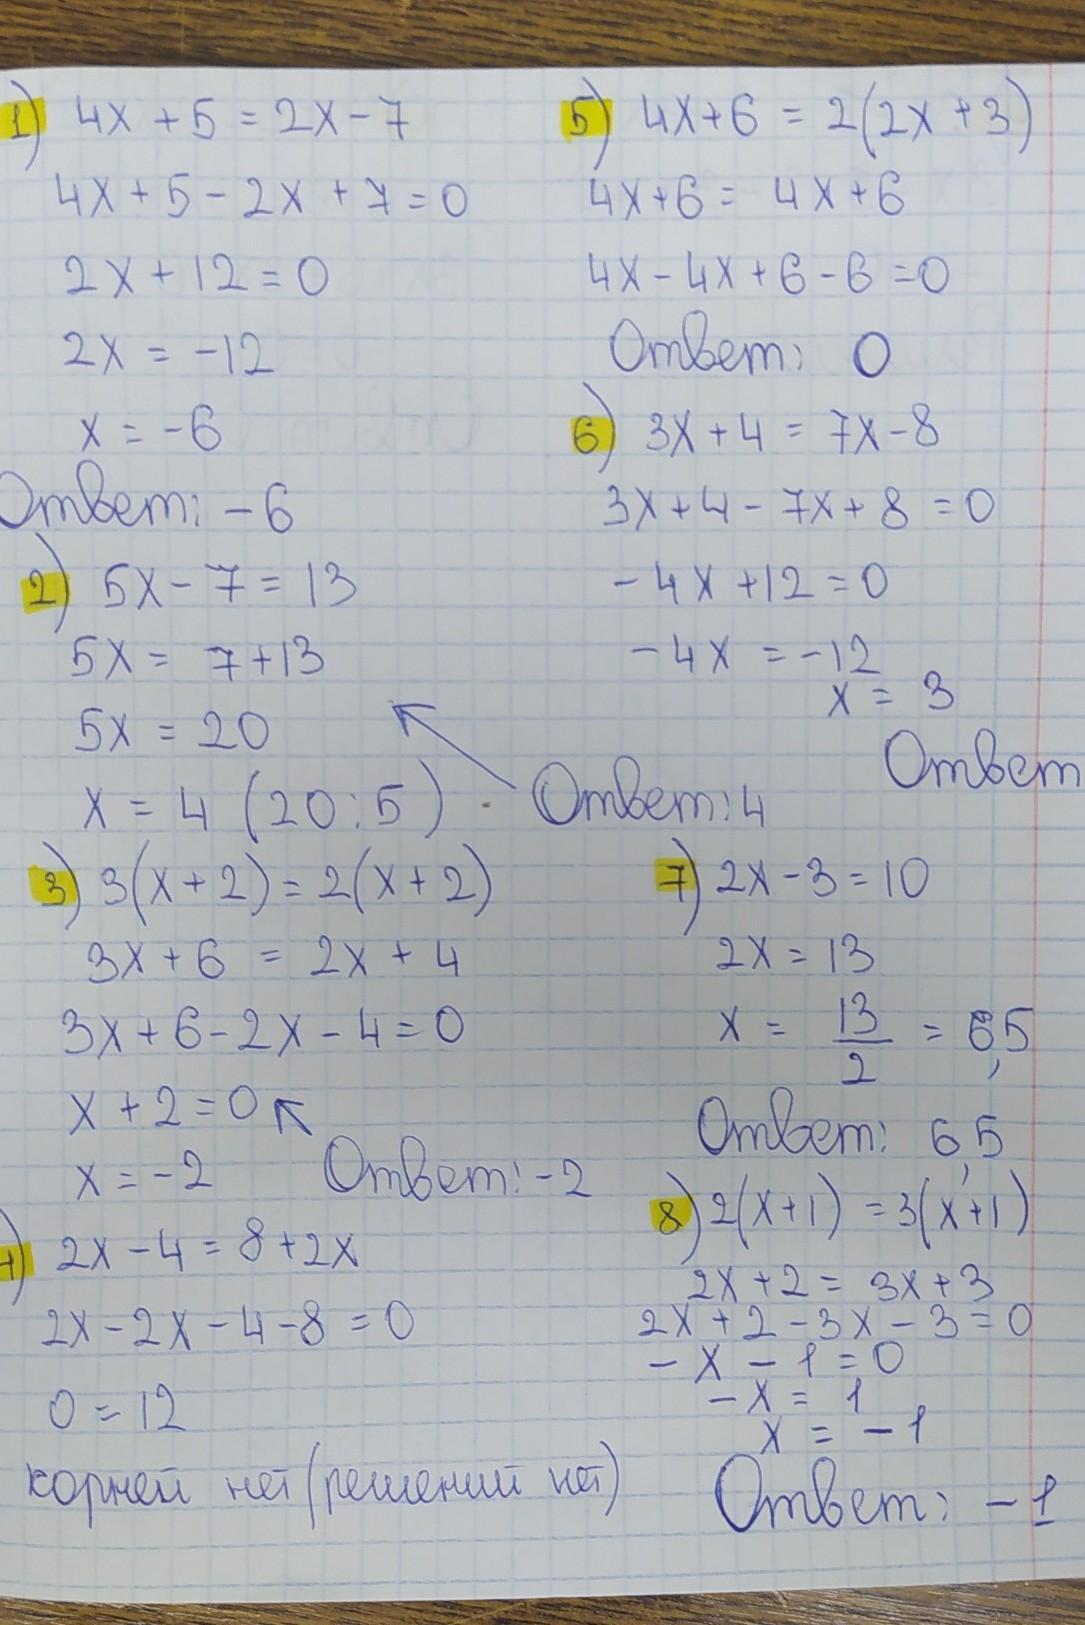 1) 4x + 5 = 2x - 7
4x + 5 - 2x + 7 = 0
2x + 12 = 0
2x = -12
x = -6
Ответ: -6
2) 5x - 7 = 13
5x = 7 + 13
5x = 20
x = 4 (20:5)
Ответ: 4
3) 3(x + 2) = 2(x + 2)
3x + 6 = 2x + 4
3x + 6 - 2x - 4 = 0
x + 2 = 0
x = -2
Ответ: -2
4) 2x - 4 = 8 + 2x
2x - 2x - 4 - 8 = 0
0 = 12
корней нет (решений нет)
5) 4x + 6 = 2(2x + 3)
4x + 6 = 4x + 6
4x - 4x + 6 - 6 = 0
Ответ: 0
6) 3x + 4 = 7x - 8
3x + 4 - 7x + 8 = 0
-4x + 12 = 0
-4x = -12
x = 3
Ответ
7) 2x - 3 = 10
2x = 13
x = 13/2 = 6,5
Ответ: 6,5
8) 2(x + 1) = 3(x + 1)
2x + 2 = 3x + 3
2x + 2 - 3x - 3 = 0
-x - 1 = 0
-x = 1
x = -1
Ответ: -1